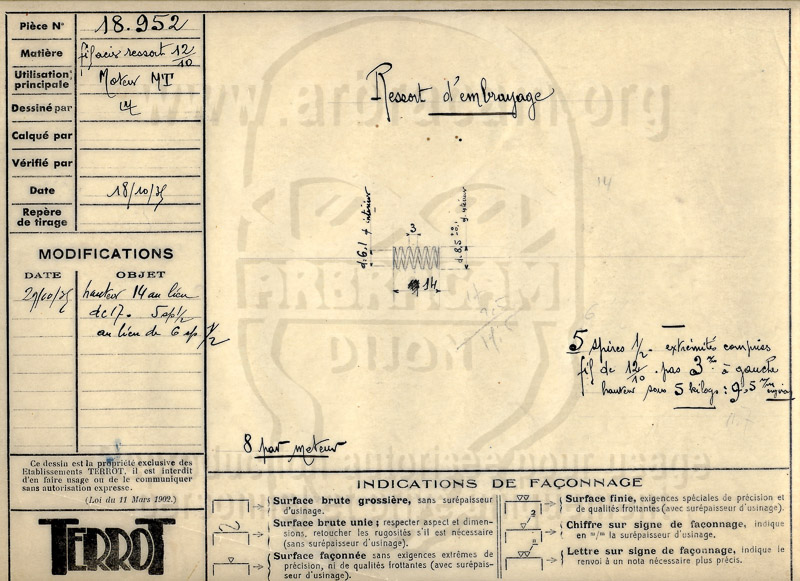 Pièce N° 18.952
Matière fil acier ressort 12/10
Utilisation principale Moteur MT
Dessiné par
Calqué par
Vérifié par
Date 18/10/35
Repère de tirage
MODIFICATIONS
DATE OBJET
29/10/35 hauteur 14 au lieu
de 17. 5 sp 1/2
au lieu de 6 sp 1/2
Ressort d'embrayage
d. 6,1 + intérieur
3
d. 8,5
14
5 spires 1/2. extrémités comprises
fil de 12/10 pas 3 m/m à gauche
hauteur sous 5 kilogs : 9,5 m/m
8 par moteur
Ce dessin est la propriété exclusive des
Etablissements TERROT, il est interdit
d'en faire usage ou de le communiquer
sans autorisation expresse.
(Loi du 11 Mars 1902.)
TERROT
INDICATIONS DE FAÇONNAGE
Surface brute grossière, sans surépaisseur
d'usinage.
Surface brute unie ; respecter aspect et dimen-
sions, retoucher les rugosités s'il est nécessaire
(sans surépaisseur d'usinage).
Surface façonnée sans exigences extrêmes de
précision, ni de qualités frottantes (avec surépais-
seur d'usinage).
Surface finie, exigences spéciales de précision et
de qualités frottantes (avec surépaisseur d'usinage).
Chiffre sur signe de façonnage, indique
en m/m la surépaisseur d'usinage.
Lettre sur signe de façonnage, indique le
renvoi à un nota nécessaire plus précis.
www.arbrakam.org
ARBRAKAM
DIJON